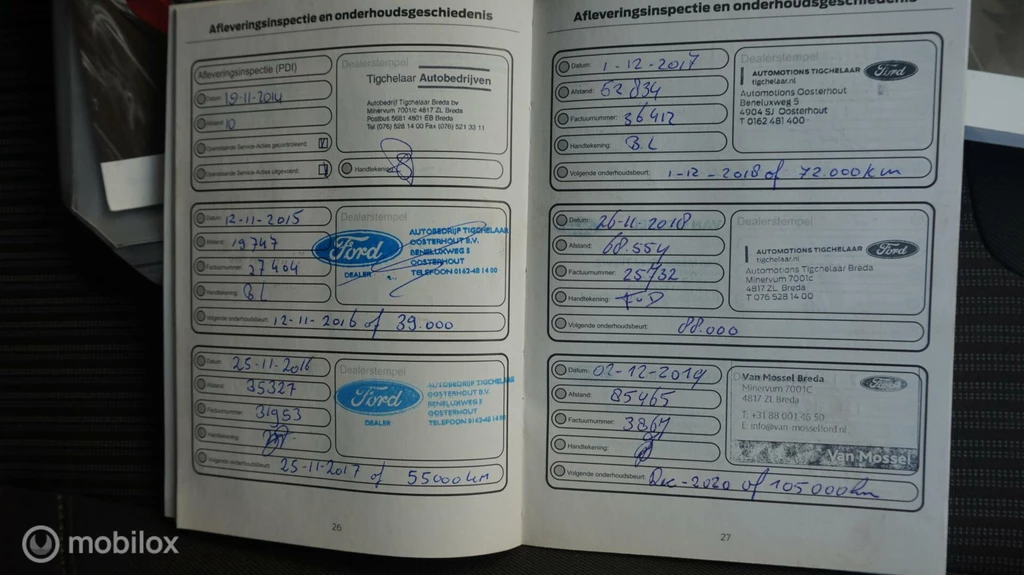 Afleveringsinspectie en onderhoudsgeschiedenis
Afleveringsinspectie (PDI)
Datum: 19-11-2014
Afstand: 10
Openstaande Service-Acties gecontroleerd:
Openstaande Service-Acties uitgevoerd:
Dealerstempel
Tigchelaar Autobedrijven
Autobedrijf Tigchelaar Breda bv
Minervum 7001c 4817 ZL Breda
Postbus 5681 4801 EB Breda
Tel (076) 528 14 00 Fax (076) 521 33 11
Handtekening:
Datum: 12-11-2015
Afstand: 19747
Factuurnummer: 27464
Handtekening: B.L
Dealerstempel
Ford
DEALER
AUTOBEDRIJF TIGCHELAAR
OOSTERHOUT B.V.
BENELUXWEG 5
OOSTERHOUT
TELEFOON 0162-48 14 00
Volgende onderhoudsbeurt: 12-11-2016 of 39.000
Datum: 25-11-2016
Afstand: 35327
Factuurnummer: 31953
Handtekening:
Dealerstempel
Ford
DEALER
AUTOBEDRIJF TIGCHELAAR
OOSTERHOUT B.V.
BENELUXWEG 5
OOSTERHOUT
TELEFOON 0162-48 14 00
Volgende onderhoudsbeurt: 25-11-2017 of 55000km
26
Afleveringsinspectie en onderhoudsgeschiedenis
Datum: 1-12-2017
Afstand: 52834
Factuurnummer: 36412
Handtekening: B.L
Dealerstempel
AUTOMOTIONS TIGCHELAAR
tigchelaar.nl
Ford
Automotions Oosterhout
Beneluxweg 5
4904 SJ Oosterhout
T 0162 481 400
Volgende onderhoudsbeurt: 1-12-2018 of 72.000km
Datum: 26-11-2018
Afstand: 68.554
Factuurnummer: 25732
Handtekening:
Dealerstempel
AUTOMOTIONS TIGCHELAAR
tigchelaar.nl
Ford
Automotions Tigchelaar Breda
Minervum 7001c
4817 ZL Breda
T 076 528 14 00
Volgende onderhoudsbeurt: 88.000
Datum: 02-12-2019
Afstand: 85465
Factuurnummer: 3867
Handtekening:
Van Mossel Breda
Minervum 7001C
4817 ZL Breda
Ford
E: info@van-mosselford.nl
Van Mossel
Volgende onderhoudsbeurt: Dec-2020 of 105000km
27
mobilox